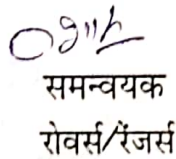 समन्वयक
रोवर्स/रेंजर्स